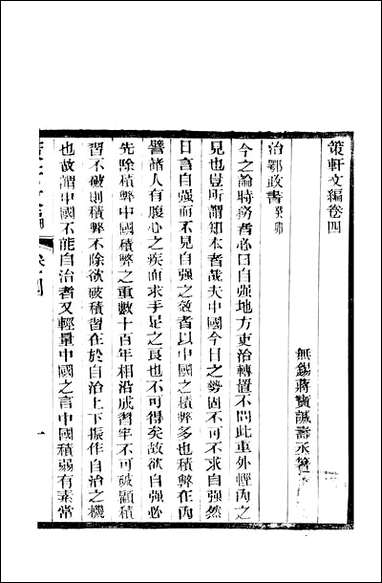 䇿軒文編卷四
無錫蔣寶諴壽丞箸
治鄒政書癸卯
今之論時務者必曰自强地方吏治轉置不問此重外輕內
見也豈所謂知本者哉夫中國今日之勢固不可不求自强然
日言自强而不見自强之效者以中國積弊多也積弊在內
譬諸人有腹心之疾而求手足之良也不可得矣故欲自强必
先除積弊中國積弊之重數十百年相沿成習牢不可破顧積
習不破則積弊不除欲破積習在於自治上下振作自治之機
也故謂中國不能自治者又輕量中國之言中國積弱有素常
一